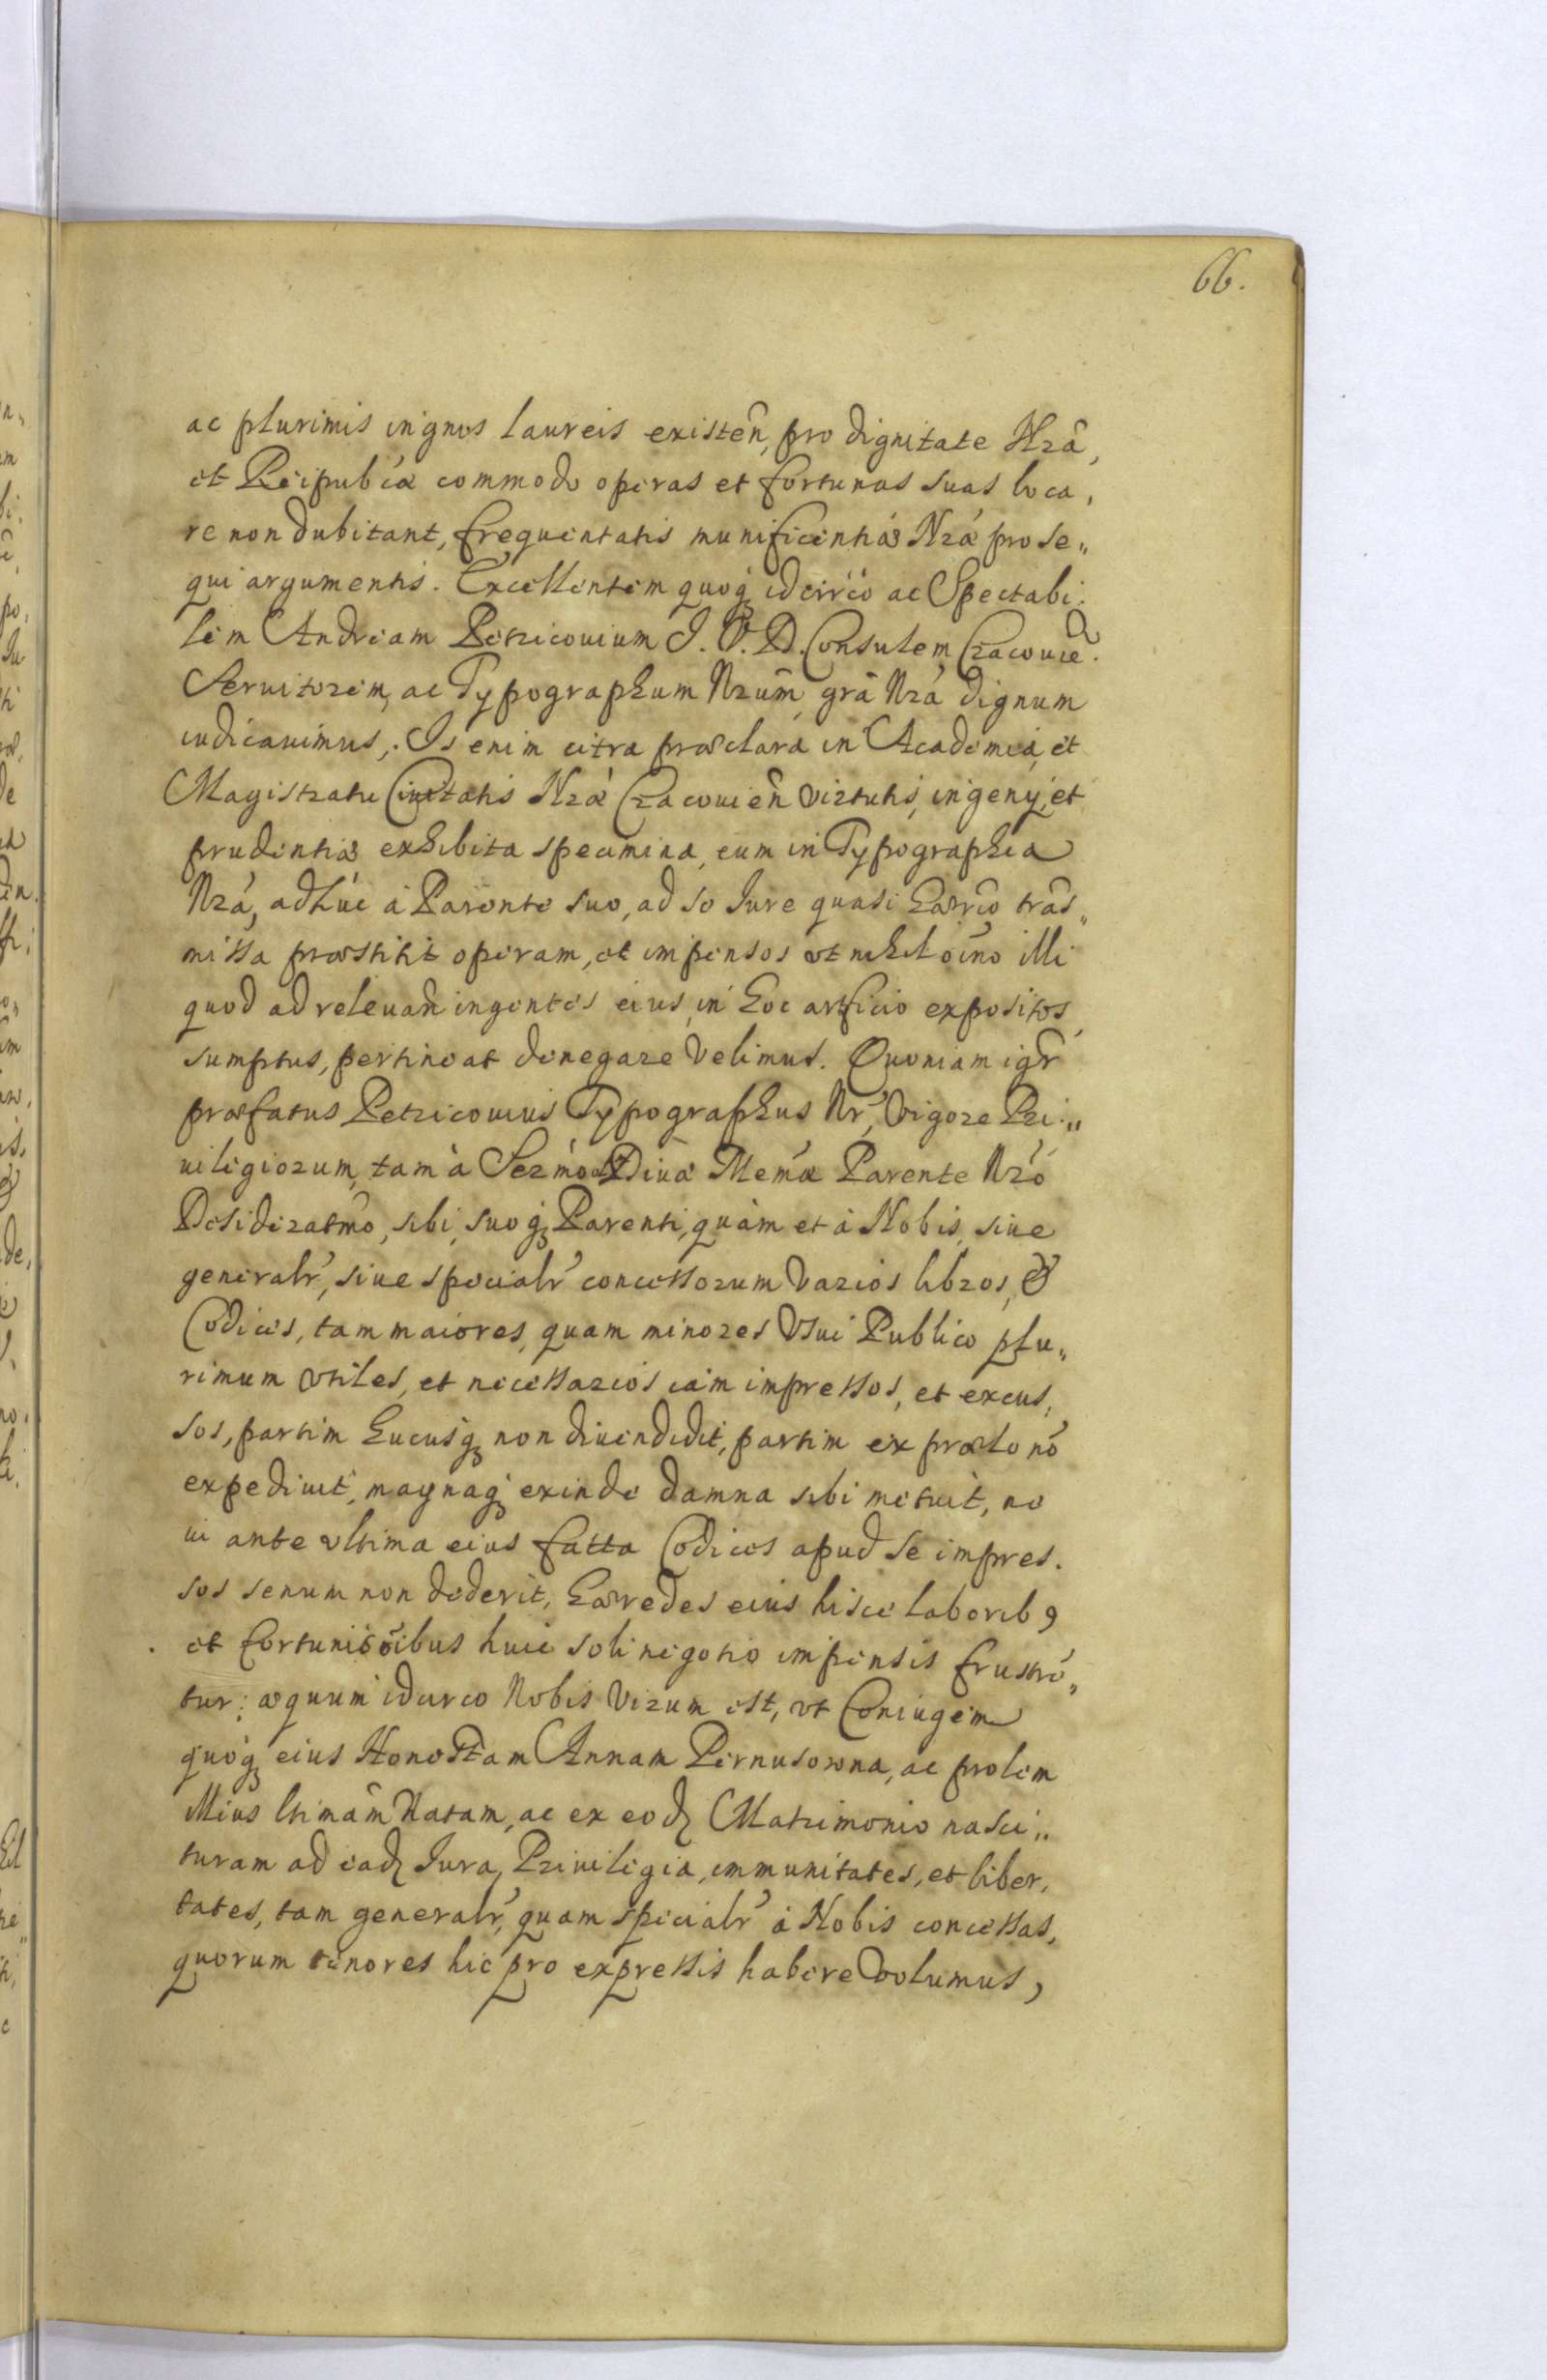 66.
ac plurimis ingnis laureis existen̄, pro dignitate Nrâ,
et Reipub́ca commodo operas et fortunas suas loca,
re non dubitant, frequentatis munificentiæ Nrǽ prose„
qui argumentis. Excellentem quoq́ idcirco ac Spectabi:
lem Andream Petricouium J. V. D. Consulem Cracouien̄.
Seruitorem, ac Typographum Nrūm, grâ Nrá dignum
iudicauimus,. Is enim citra præclara in Academia, et
Magistratu Ciuitatis Nrǽ Cracouien̄ virtutis, ingenÿ, et
prudentiæ exhibita specimina, eam in Typographia
Nrá, adhuc à Parente suo, ad se Jure quasi hærēo trās„
missa præstitit operam, et impensas vt nihil oīno illi
quod ad releuan̄ ingentes eius, in hoc artficio expositos,
sumptus, pertineat denegare Velimus. Quoniam igr̄
præfatus Petricouius Typographus Nr̄, Vigore Pri„
uilegiorum, tam à Serḿo Diuæ Meḿæ Parente Nró
Desideratmō, sibi, suoq́ Parenti, quàm et à Nobis, siue
generalr̄, siue specialr̄ concessorum Varios libros, &
Codices, tam maiores, quam minores Vsui Publico plu„
rimum vtiles, et necessarios iam impressos, et excus,
sos, partim hucusq́ non diuendidit, partim ex prælo nō
expediuit, magnaq́ exinde damna sibi metuit, ne
ui ante vltima eius fatta Codices apud se impres.
sos senum non dederit, hæredes eius hisce laborib9
et fortunis oībus huic soli negotio impensis frustrē„
tur: æquum idcirco Nobis Visum est, vt Coniugem
quoq́ eius Honestam Annam Pernusowna, ac prolem
illius ltimām Natam, ac ex eodȩ Matrimonio nasci„
turam ad eadȩ Jura, Priuilegia, immunitates, et liber,
tates, tam generalr̄, quam specialr̄ à Nobis concessas,
quorum tenores hic pro expressis habere Volumus,